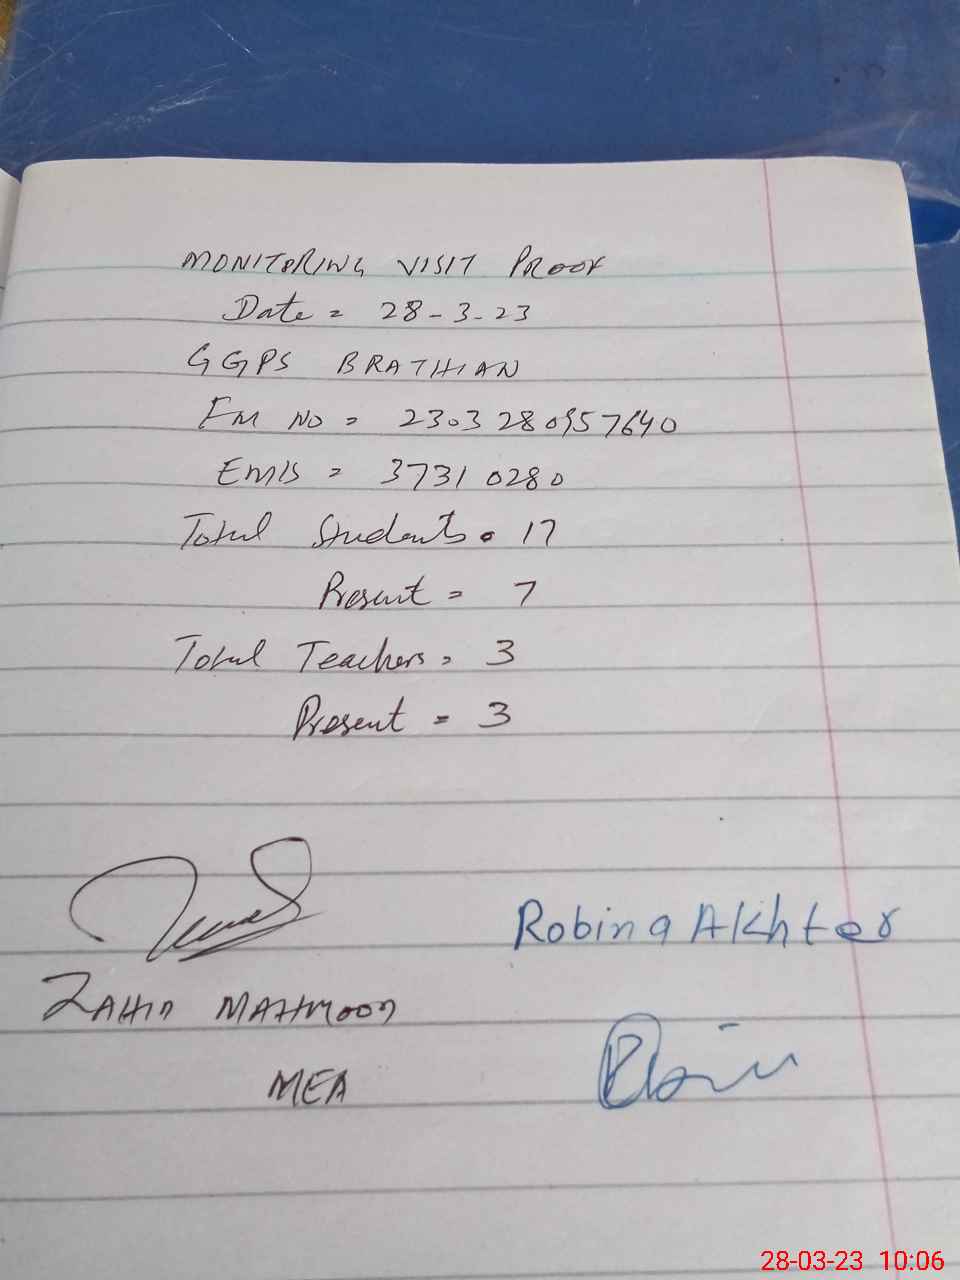 MONITORING VISIT PROOF
Date = 28-3-23
GGPS BRATHIAN
FM NO = 2303280957640
EMIS = 37310280
Total Students = 17
Present = 7
Total Teachers = 3
Present = 3
Robina Akhter
ZAHID MAHMOOD
MEA
28-03-23 10:06